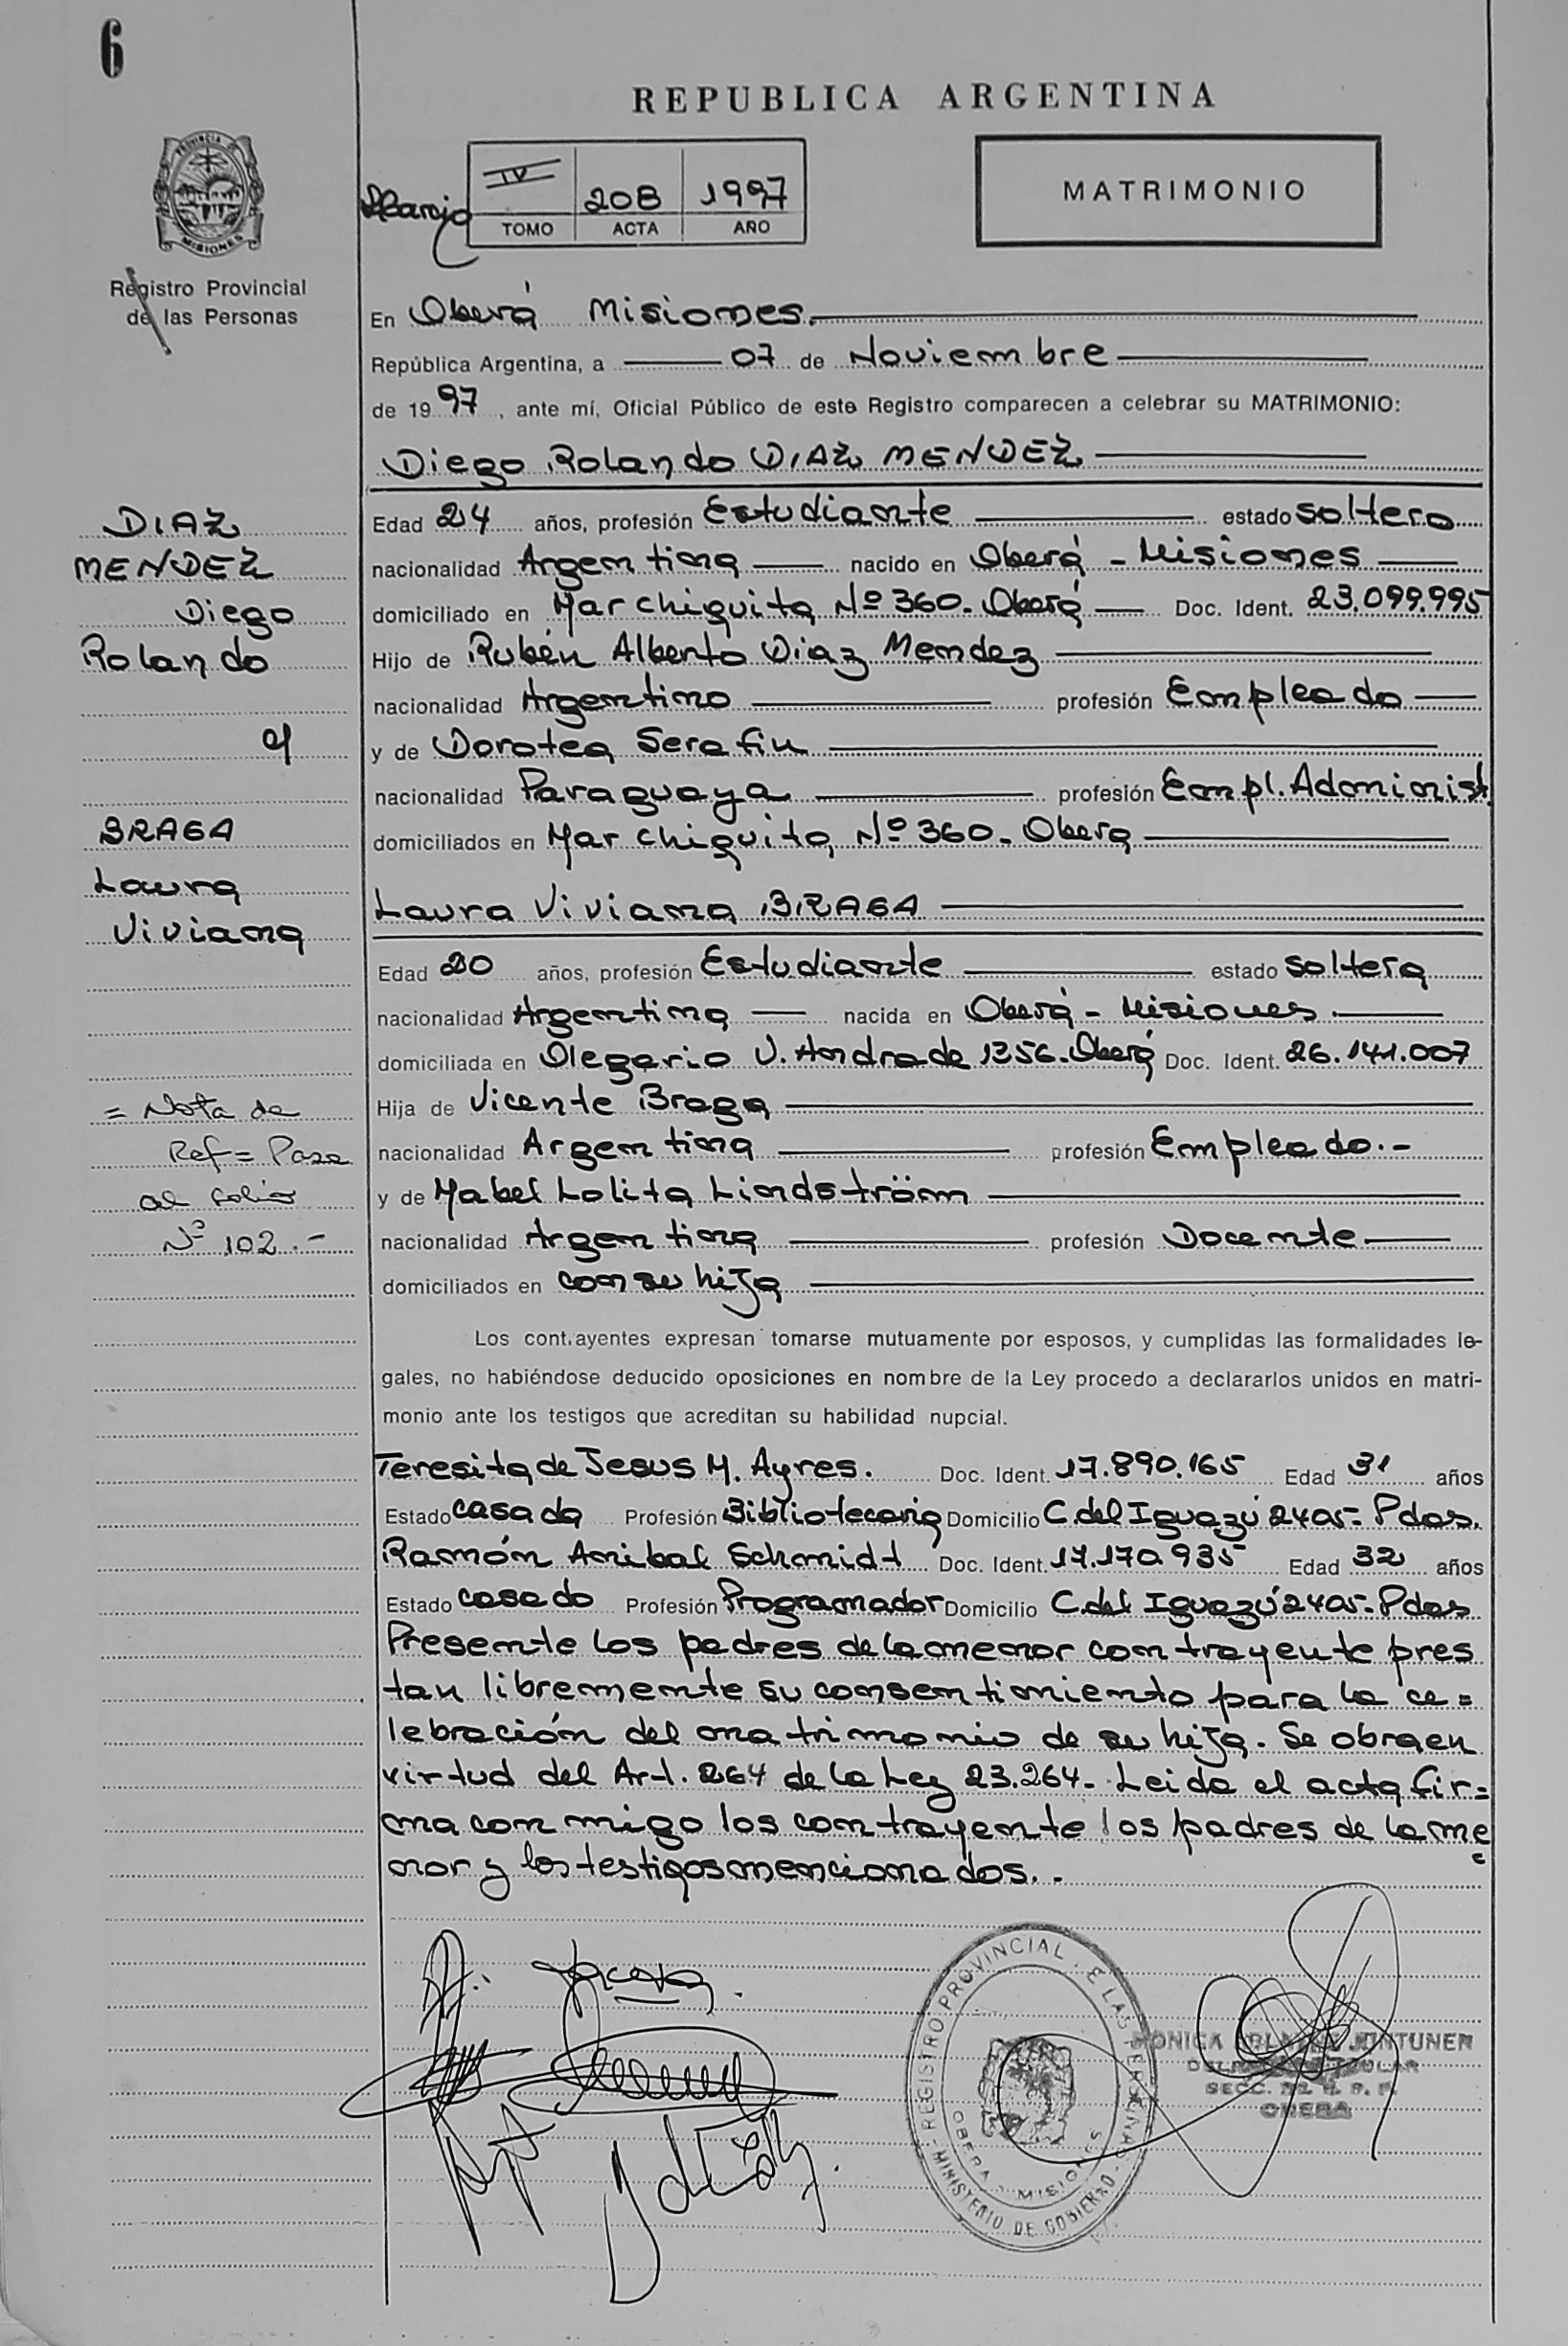 6
REPUBLICA ARGENTINA
PROVINCIA D
MISIONES
Registro Provincial
de las Personas
IV 208 1997
TOMO ACTA AÑO
MATRIMONIO
En Oberá Misiones.
República Argentina, a 07 de Noviembre
de 1997, ante mí, Oficial Público de este Registro comparecen a celebrar su MATRIMONIO:
Diego Rolando DIAZ MENDEZ
DIAZ
MENDEZ
Diego
Rolando
y
BRAGA
Laura
Viviana
Edad 24 años, profesión Estudiante estado soltero
nacionalidad Argentina nacido en Oberá - Misiones
domiciliado en Mar chiquita Nº 360. Oberá Doc. Ident. 23.099.995
Hijo de Rubén Alberto Diaz Mendez
nacionalidad Argentino profesión Empleado
y de Dorotea Serafin
nacionalidad Paraguaya profesión Empl. Administ.
domiciliados en Mar chiquita Nº 360. Obera
Laura Viviana BRAGA
Edad 20 años, profesión Estudiante estado soltera
nacionalidad Argentina nacida en Oberá - Misiones.
domiciliada en Olegario V. Andrade 1356. Oberá Doc. Ident. 26.141.007
Hija de Vicente Braga
nacionalidad Argentina profesión Empleado.-
y de Mabel Lolita Lindström
nacionalidad Argentina profesión Docente
domiciliados en con su hija
= Nota de
Ref = Pasa
al folio
Nº 102.-
Los cont.ayentes expresan tomarse mutuamente por esposos, y cumplidas las formalidades le-
gales, no habiéndose deducido oposiciones en nombre de la Ley procedo a declararlos unidos en matri-
monio ante los testigos que acreditan su habilidad nupcial.
Teresita de Jesus M. Ayres. Doc. Ident. 17.890.165 Edad 31 años
Estado casada Profesión Bibliotecaria Domicilio C. del Iguazú 2405- Pdas.
Ramón Anibal Schmidt Doc. Ident. 17.170.935 Edad 32 años
Estado casado Profesión Programador Domicilio C. del Iguazú 2405- Pdas
Presente los padres de la menor contrayente pres
tan libremente su consentimiento para la ce=
lebración del matrimonio de su hija. Se obra en
virtud del Art. 264 de la Ley 23.264. Leida el acta fir=
ma con migo los contrayente los padres de la me
nor y los testigos mencionados..
REGISTRO PROVINCIAL E LAS PERSONAS
MINISTERIO DE GOBIERNO
OBERA - MISIONES
MONICA JUNTUNEN
OBERA